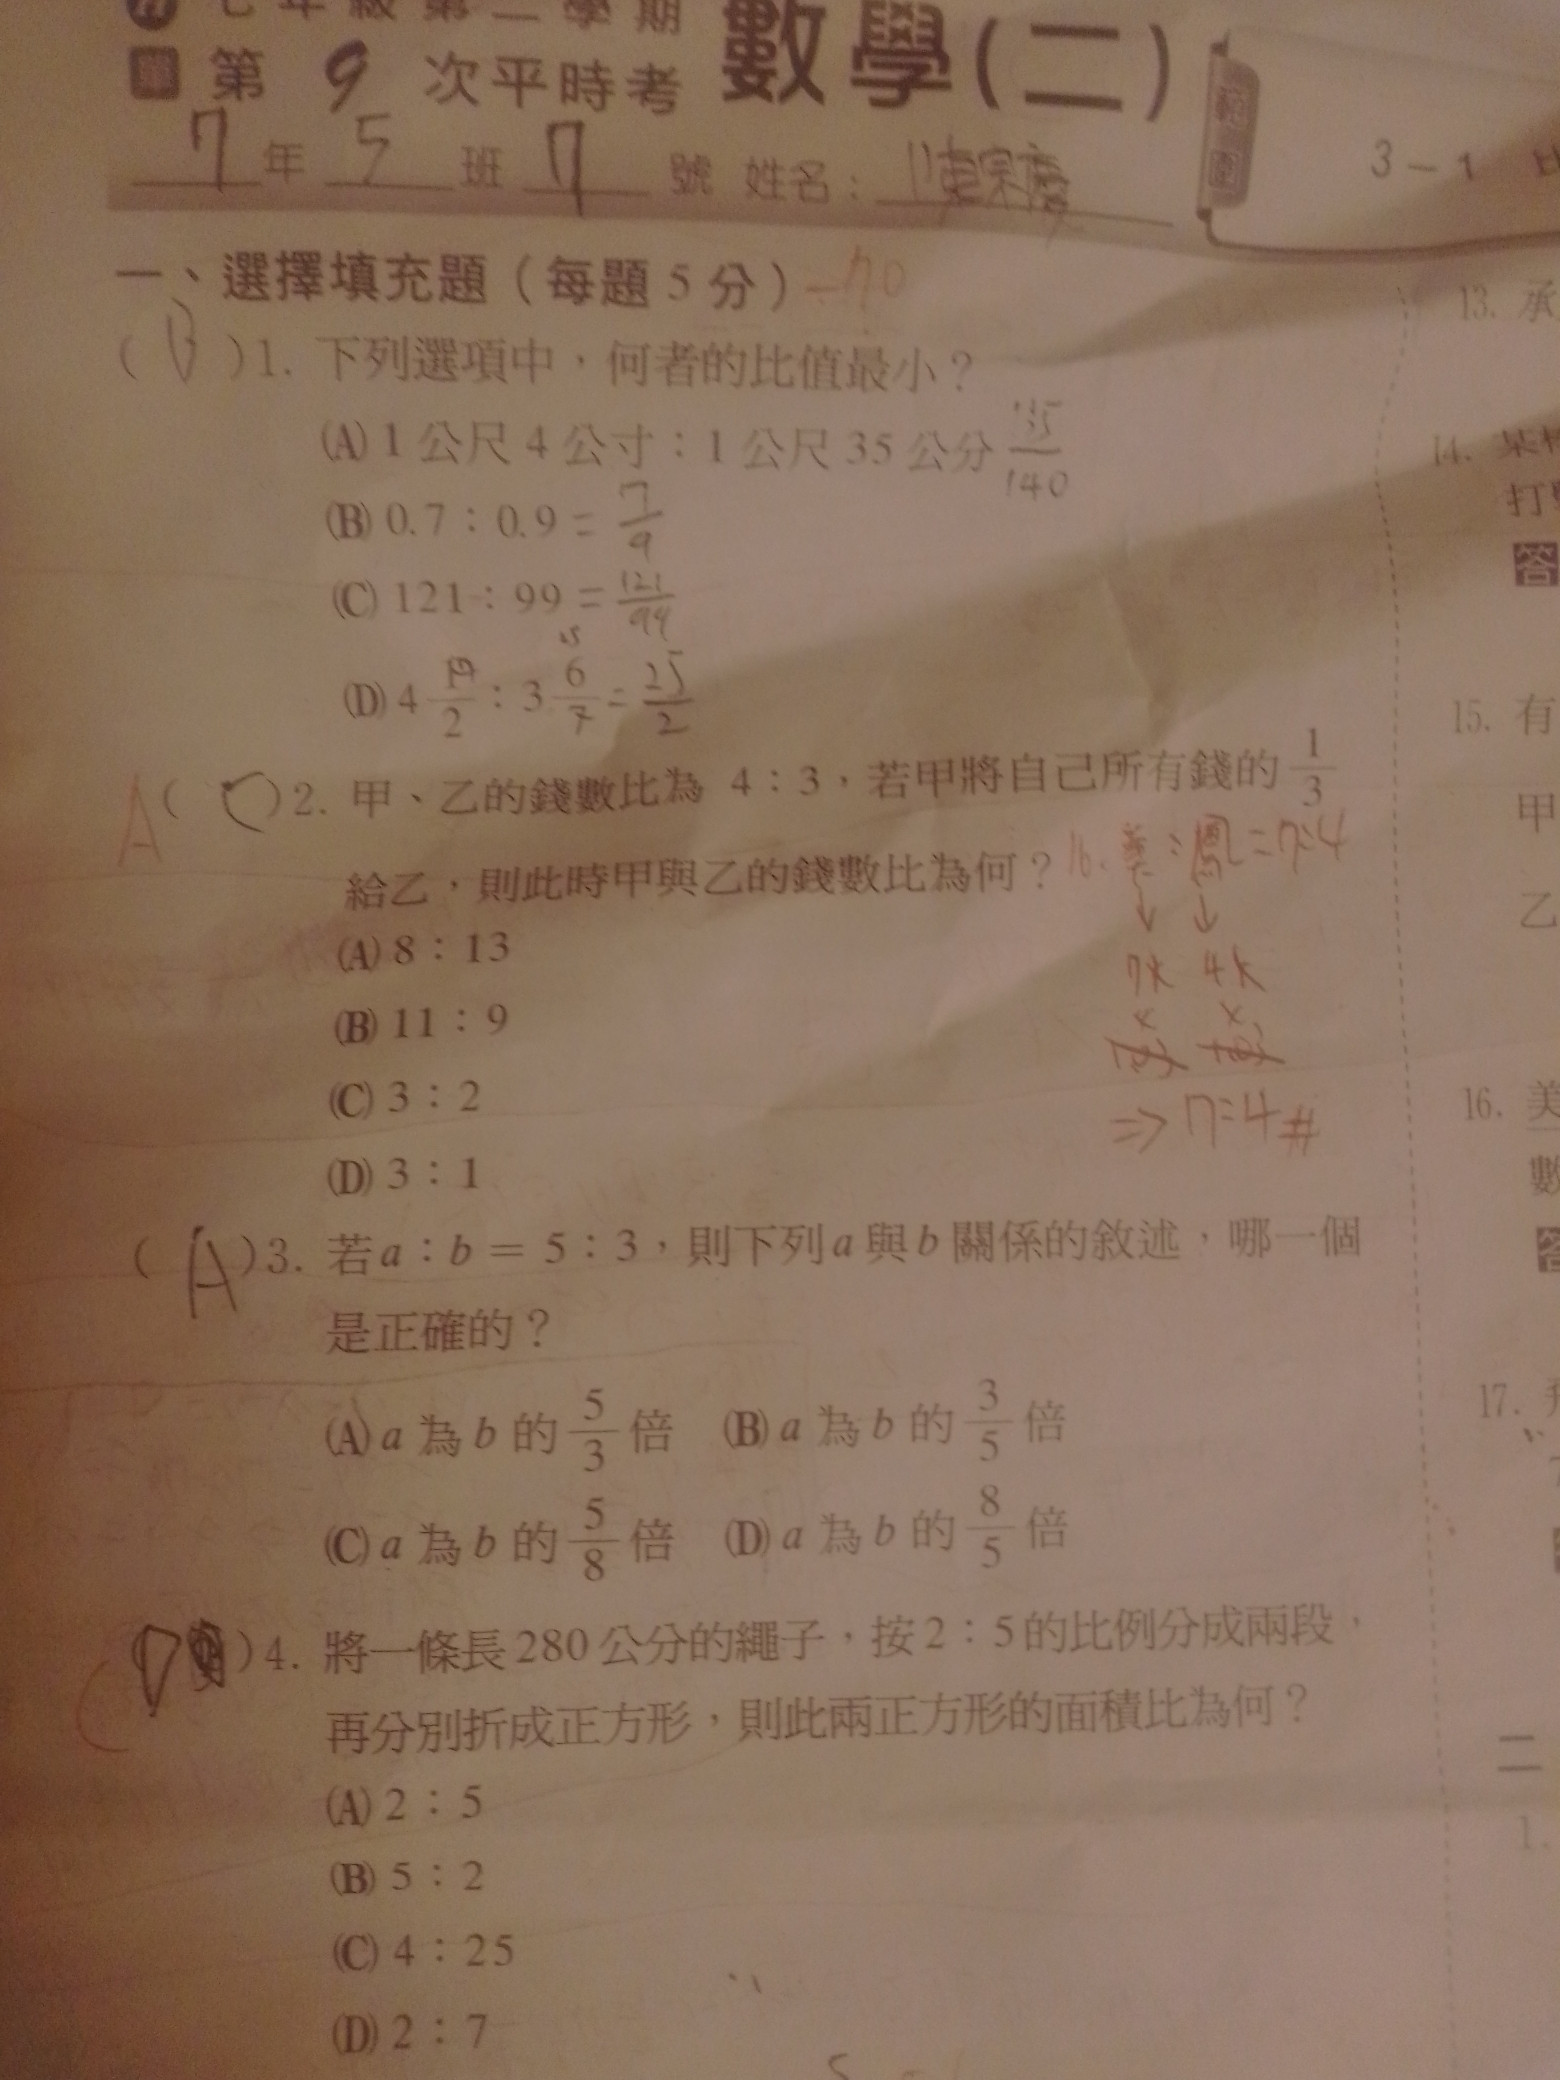 七年級第二學期
單 第 9 次平時考 數學(二)
7 年 5 班 7 號 姓名:
範圍 3-1 比
一、選擇填充題(每題5分) -70
( B )1. 下列選項中,何者的比值最小?
(A) 1 公尺 4 公寸:1 公尺 35 公分 135/140
(B) 0.7:0.9 = 7/9
(C) 121:99 = 121/99
(D) 4 1/2:3 6/7 = 25/2
A ( C )2. 甲、乙的錢數比為 4:3,若甲將自己所有錢的 1/3
給乙,則此時甲與乙的錢數比為何?
(A) 8:13
(B) 11:9
(C) 3:2
(D) 3:1
16. 美:鳳=7:4
↓ ↓
7k 4k
⇒ 7:4 #
( A )3. 若 a:b = 5:3,則下列 a 與 b 關係的敘述,哪一個
是正確的?
(A) a 為 b 的 5/3 倍 (B) a 為 b 的 3/5 倍
(C) a 為 b 的 5/8 倍 (D) a 為 b 的 8/5 倍
C ( D )4. 將一條長 280 公分的繩子,按 2:5 的比例分成兩段,
再分別折成正方形,則此兩正方形的面積比為何?
(A) 2:5
(B) 5:2
(C) 4:25
(D) 2:7
13. 承
14. 某
打
答
15. 有
甲
乙
16. 美
數
答
17.
二
1.